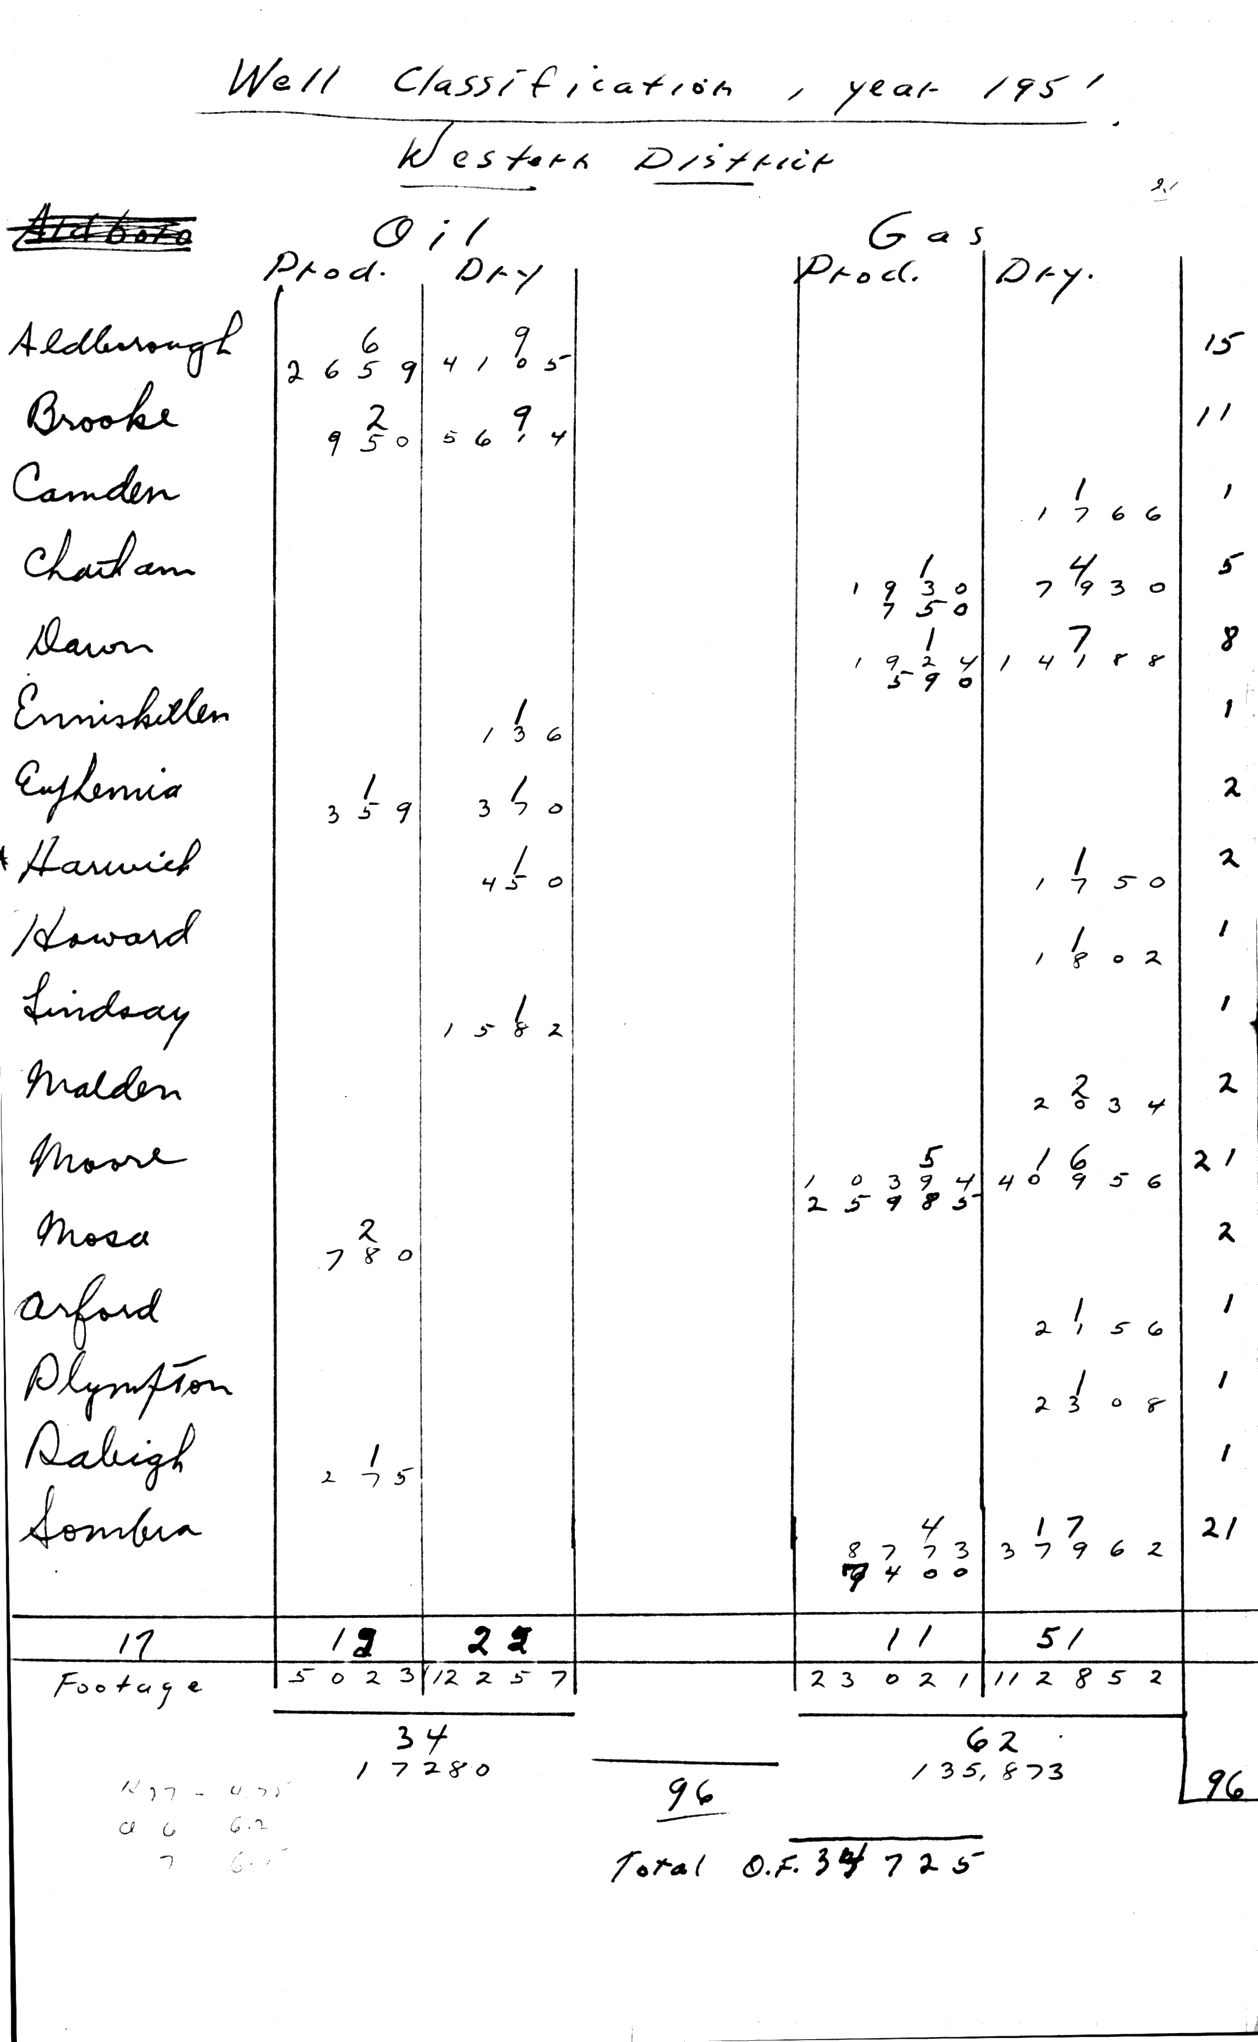 Well Classification, year 1951.
Western District
Oil Gas
Prod. Dry Prod. Dry.
Aldborough 6 9 15
2659 4105
Brooke 2 9 11
950 5614
Camden 1 1
1766
Chatham 1 4 5
1930 7930
750
Dawn 1 7 8
1924 14188
590
Enniskillen 1 1
136
Euphemia 1 1 2
359 370
Harwich 1 1 2
450 1750
Howard 1 1
1802
Lindsay 1 1
1582
Malden 2 2
2034
Moore 5 16 21
10394 40956
25985
Mosa 2 2
780
Orford 1 1
2156
Plympton 1 1
2308
Raleigh 1 1
275
Sombra 4 17 21
8773 37962
7400
17 12 22 11 51
Footage 5023 12257 23021 112852
34 62
17280 135,873
96 96
Total O.F. 34725